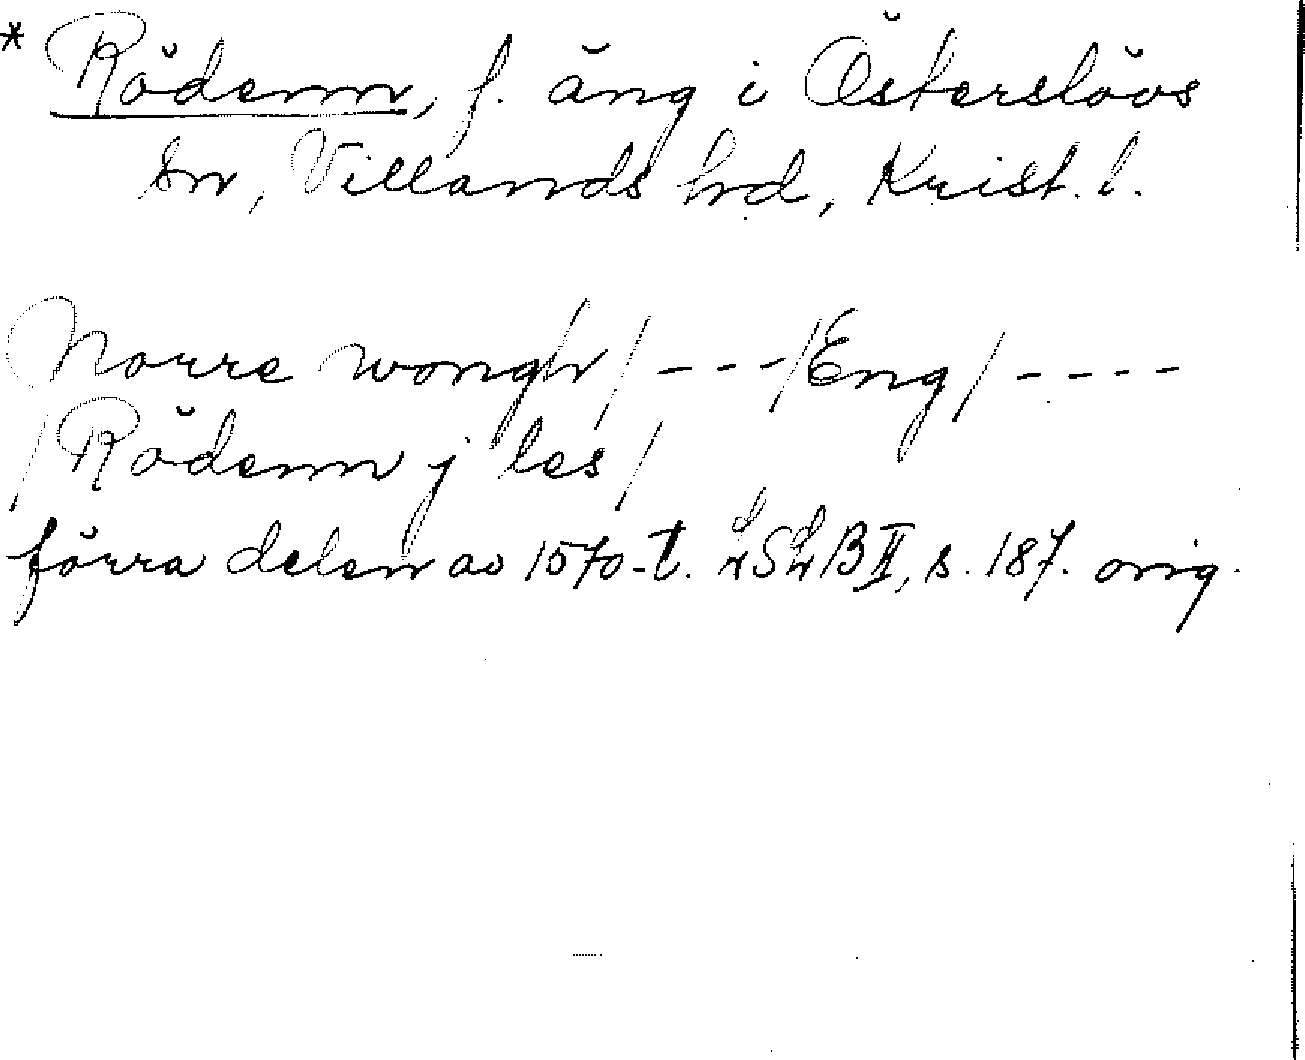 * Rödemn, f. äng i Österslövs
sn, Villands hrd, Krist. l.
Norre wongh / - - - / Eng / - - - -
/ Rödemn j les /
förra delen av 1570-t. LSLB II, s. 187. orig.